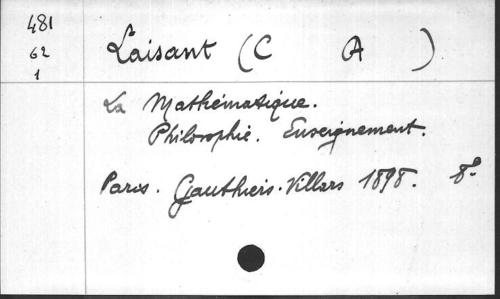 481
62
1
Laisant (C A )
La Mathématique.
Philosophie. Enseignement.
Paris. Gauthiers-Villars 1898. 8º